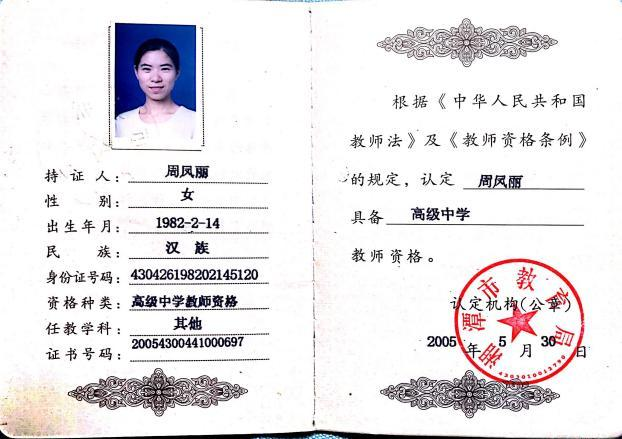 持证人：周凤丽
性别：女
出生年月：1982-2-14
民族：汉族
身份证号码：430426198202145120
资格种类：高级中学教师资格
任教学科：其他
证书号码：20054300441000697
根据《中华人民共和国
教师法》及《教师资格条例》
的规定，认定 周凤丽
具备 高级中学
教师资格。
湘潭市教育局
认定机构(公章)
2005年5月30日